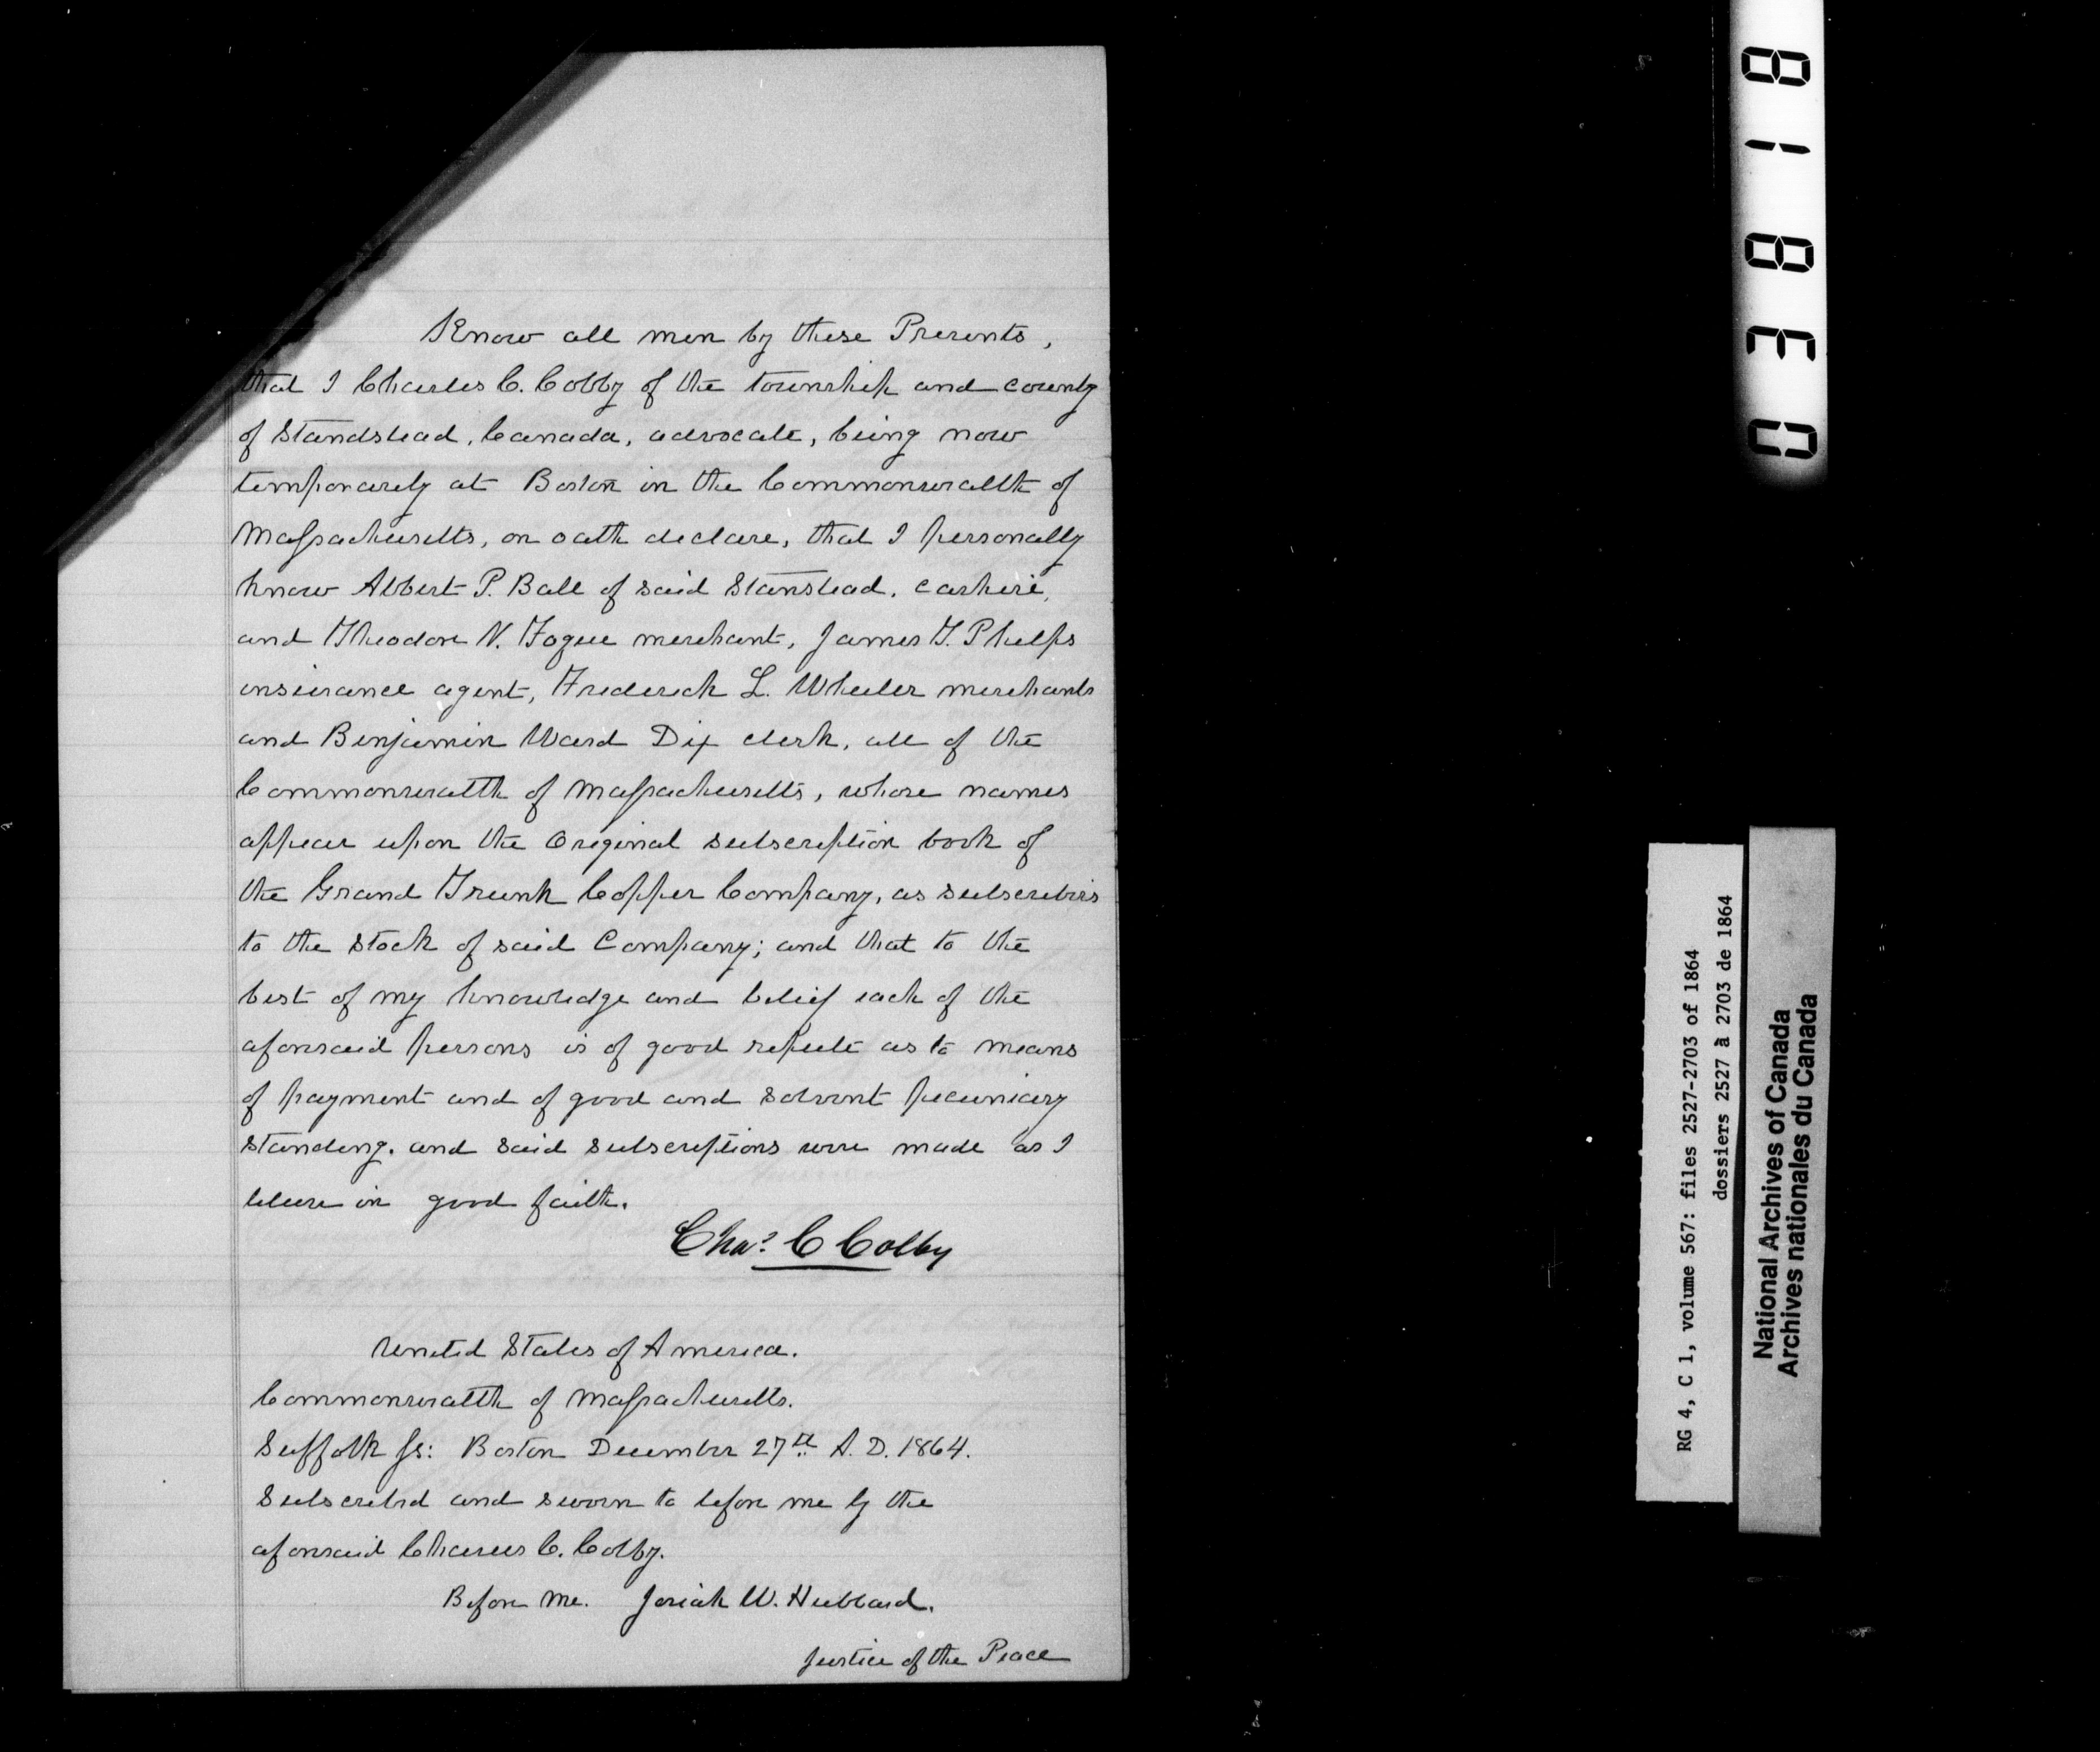 Know all men by these Presents,
that I Charles C. Colby of the township and county
of Standstead, Canada, advocate, being now
temporarely at Boston in the Commonwealth of
Massachusetts, on oath declare, that I personally
know Albert P. Ball of said Stanstead, cashire,
and Theodore N. Fogue merchant, James T. Phelps
insurance agent, Frederick L. Wheeler merchants
and Benjamin Ward Dix clerk, all of the
Commonwealth of Massachusetts, whose names
appear upon the original subscription book of
the Grand Trunk Copper Company, as subscribers
to the stock of said Company; and that to the
best of my knowledge and belief each of the
aforesaid persons is of good repute as to means
of payment and of good and solvent pecuniary
standing. and said subscriptions were made as I
beleve in good faith.
Chas. C Colby
United States of America.
Commonwealth of Massachusetts.
Suffolk ss: Boston December 27th A. D. 1864.
Subscribed and sworn to before me by the
aforesaid Charles C. Colby.
Before me. Josiah W. Hubbard.
Justice of the Peace
0 3 8 1 8
RG 4, C 1, volume 567: files 2527-2703 of 1864
dossiers 2527 à 2703 de 1864
National Archives of Canada
Archives nationales du Canada